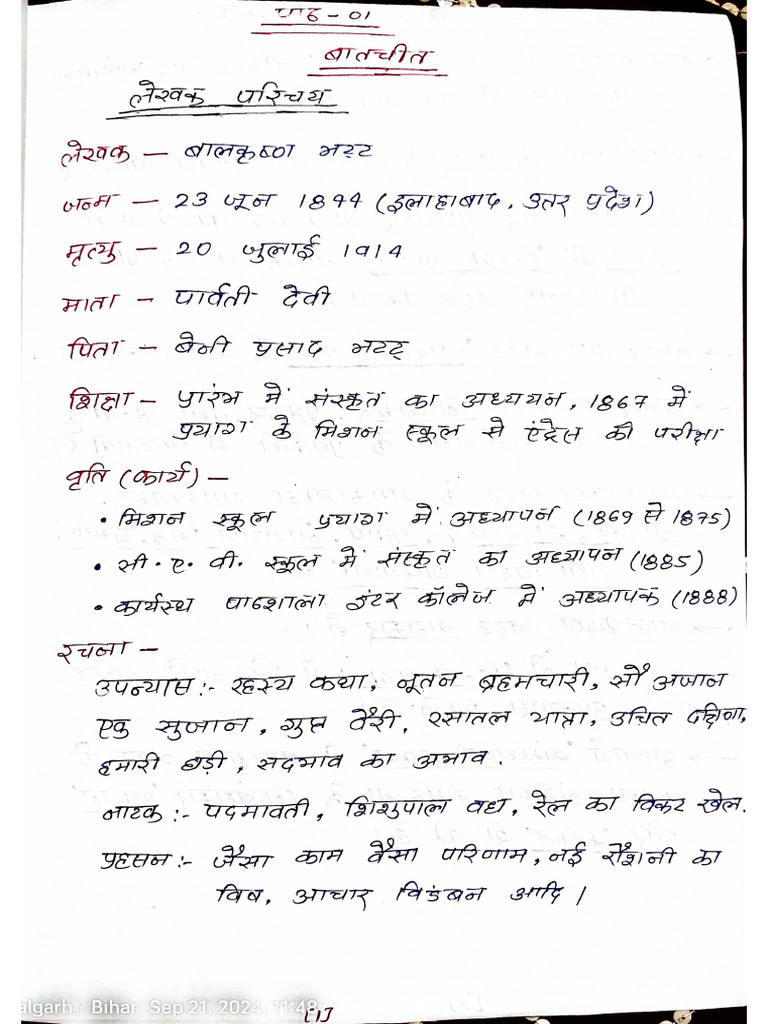 पाठ - 01
बातचीत
लेखक परिचय
लेखक – बालकृष्ण भट्ट
जन्म – 23 जून 1844 (इलाहाबाद, उतर प्रदेश)
मृत्यु – 20 जुलाई 1914
माता – पार्वती देवी
पिता – बेनी प्रसाद भटट्
शिक्षा – प्रारंभ में संस्कृत का अध्ययन, 1867 में
प्रयाग के मिशन स्कूल से एंट्रेस की परीक्षा
वृति (कार्य) –
• मिशन स्कूल प्रयाग में अध्यापन (1869 से 1875)
• सी. ए. वी. स्कूल में संस्कृत का अध्यापन (1885)
• कार्यस्थ पाठशाला इंटर कॉलेज में अध्यापक (1888)
रचना –
उपन्यास :- रहस्य कथा, नूतन ब्रहमचारी, सौ अजान
एक सुजान, गुप्त वैरी, रसातल यात्रा, उचित दक्षिना,
हमारी छड़ी, सदभाव का अभाव.
नाटक :- पदमावती, शिशुपाल वध, रेल का विकट खेल.
प्रहसन :- जैसा काम वैसा परिणाम, नई रौशनी का
विष, आचार विडंबन आदि।
algarh, Bihar Sep 21, 2024, 11:48
[1]